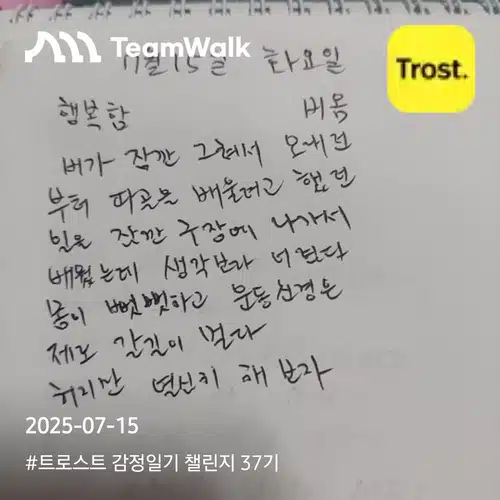 TeamWalk
Trost.
7월 15일 화요일
행복함 비 옴
비가 잠깐 그쳐서 오래전
부터 파골을 배울려고 했던
일을 잠깐 구장에 나가서
배웠는데 생각보다 어렵다
몸이 뻣뻣하고 운동신경은
제로 갈길이 멀다
하지만 열심히 해 보자
2025-07-15
#트로스트 감정일기 챌린지 37기